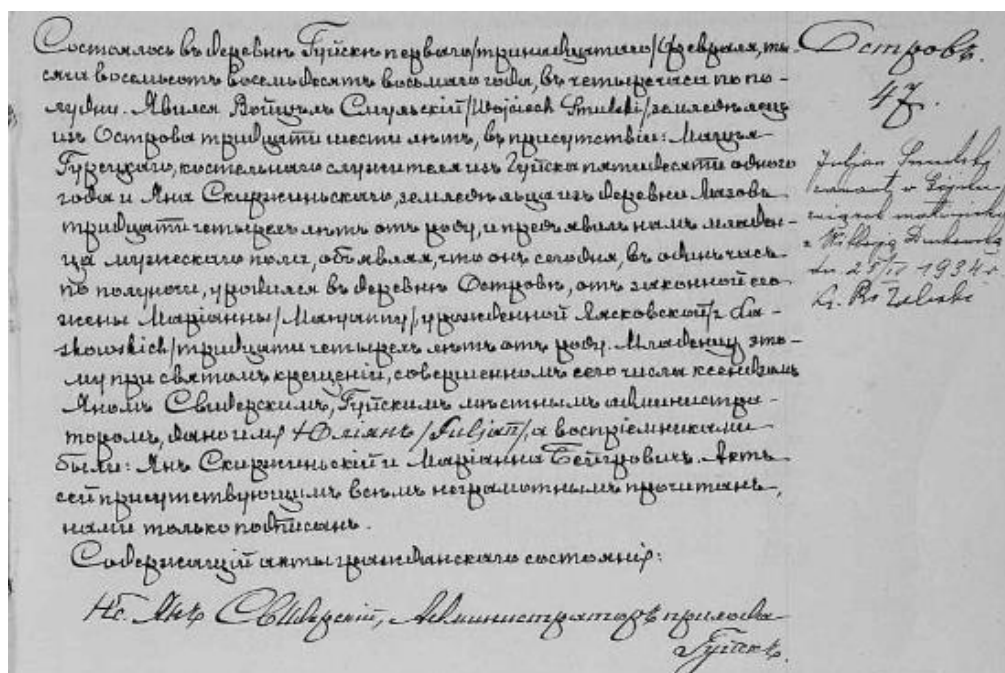 Состоялось въ деревнѣ Гуйскѣ перваго/тринадцатаго/Февраля, ты-
сяча восемьсотъ восемьдесятъ восьмаго года, въ четыре часа по по-
лудни. Явился Войцѣхъ Смульскій/Wojciech Smulski/, земледѣлецъ
изъ Острова тридцати шести лѣтъ, въ присутствіи: Мацѣя
Гурецкаго, костельнаго служителя изъ Гуйска пятидесяти одного
года и Яна Скиржиньскаго, земледѣльца изъ деревни Мазовъ
тридцати четырехъ лѣтъ отъ роду, и предъявилъ намъ младен-
ца мужескаго пола, объявляя, что онъ сегодня, въ одинъ часъ
по полуночи, уродился въ деревнѣ Островѣ, отъ законной его
жены Маріанны/Маryanny/, урожденной Ласковской/z La-
skowskich/тридцати четырехъ лѣтъ отъ роду. Младенцу это-
му при святомъ крещеніи, совершенномъ сего числа ксендзомъ
Яномъ Свидерскимъ, Гуйскимъ мѣстнымъ администра-
торомъ, дано имя Юліянъ/Juljan/, а воспріемниками
были: Янъ Скиржиньскій и Маріанна Бейгровичъ. Актъ
сей присутствующимъ всѣмъ неграмотнымъ прочитанъ,
нами только подписанъ.
Содержащій акты гражданскаго состоянія:
Кс. Янъ Свидерскій, Администраторъ прихода
Гуйскъ.
Островъ.
47.
Juljan Smulski
zawarł w Gójsku
związek małżeński
z Wiktorją
dn. 25/II 1934 r.